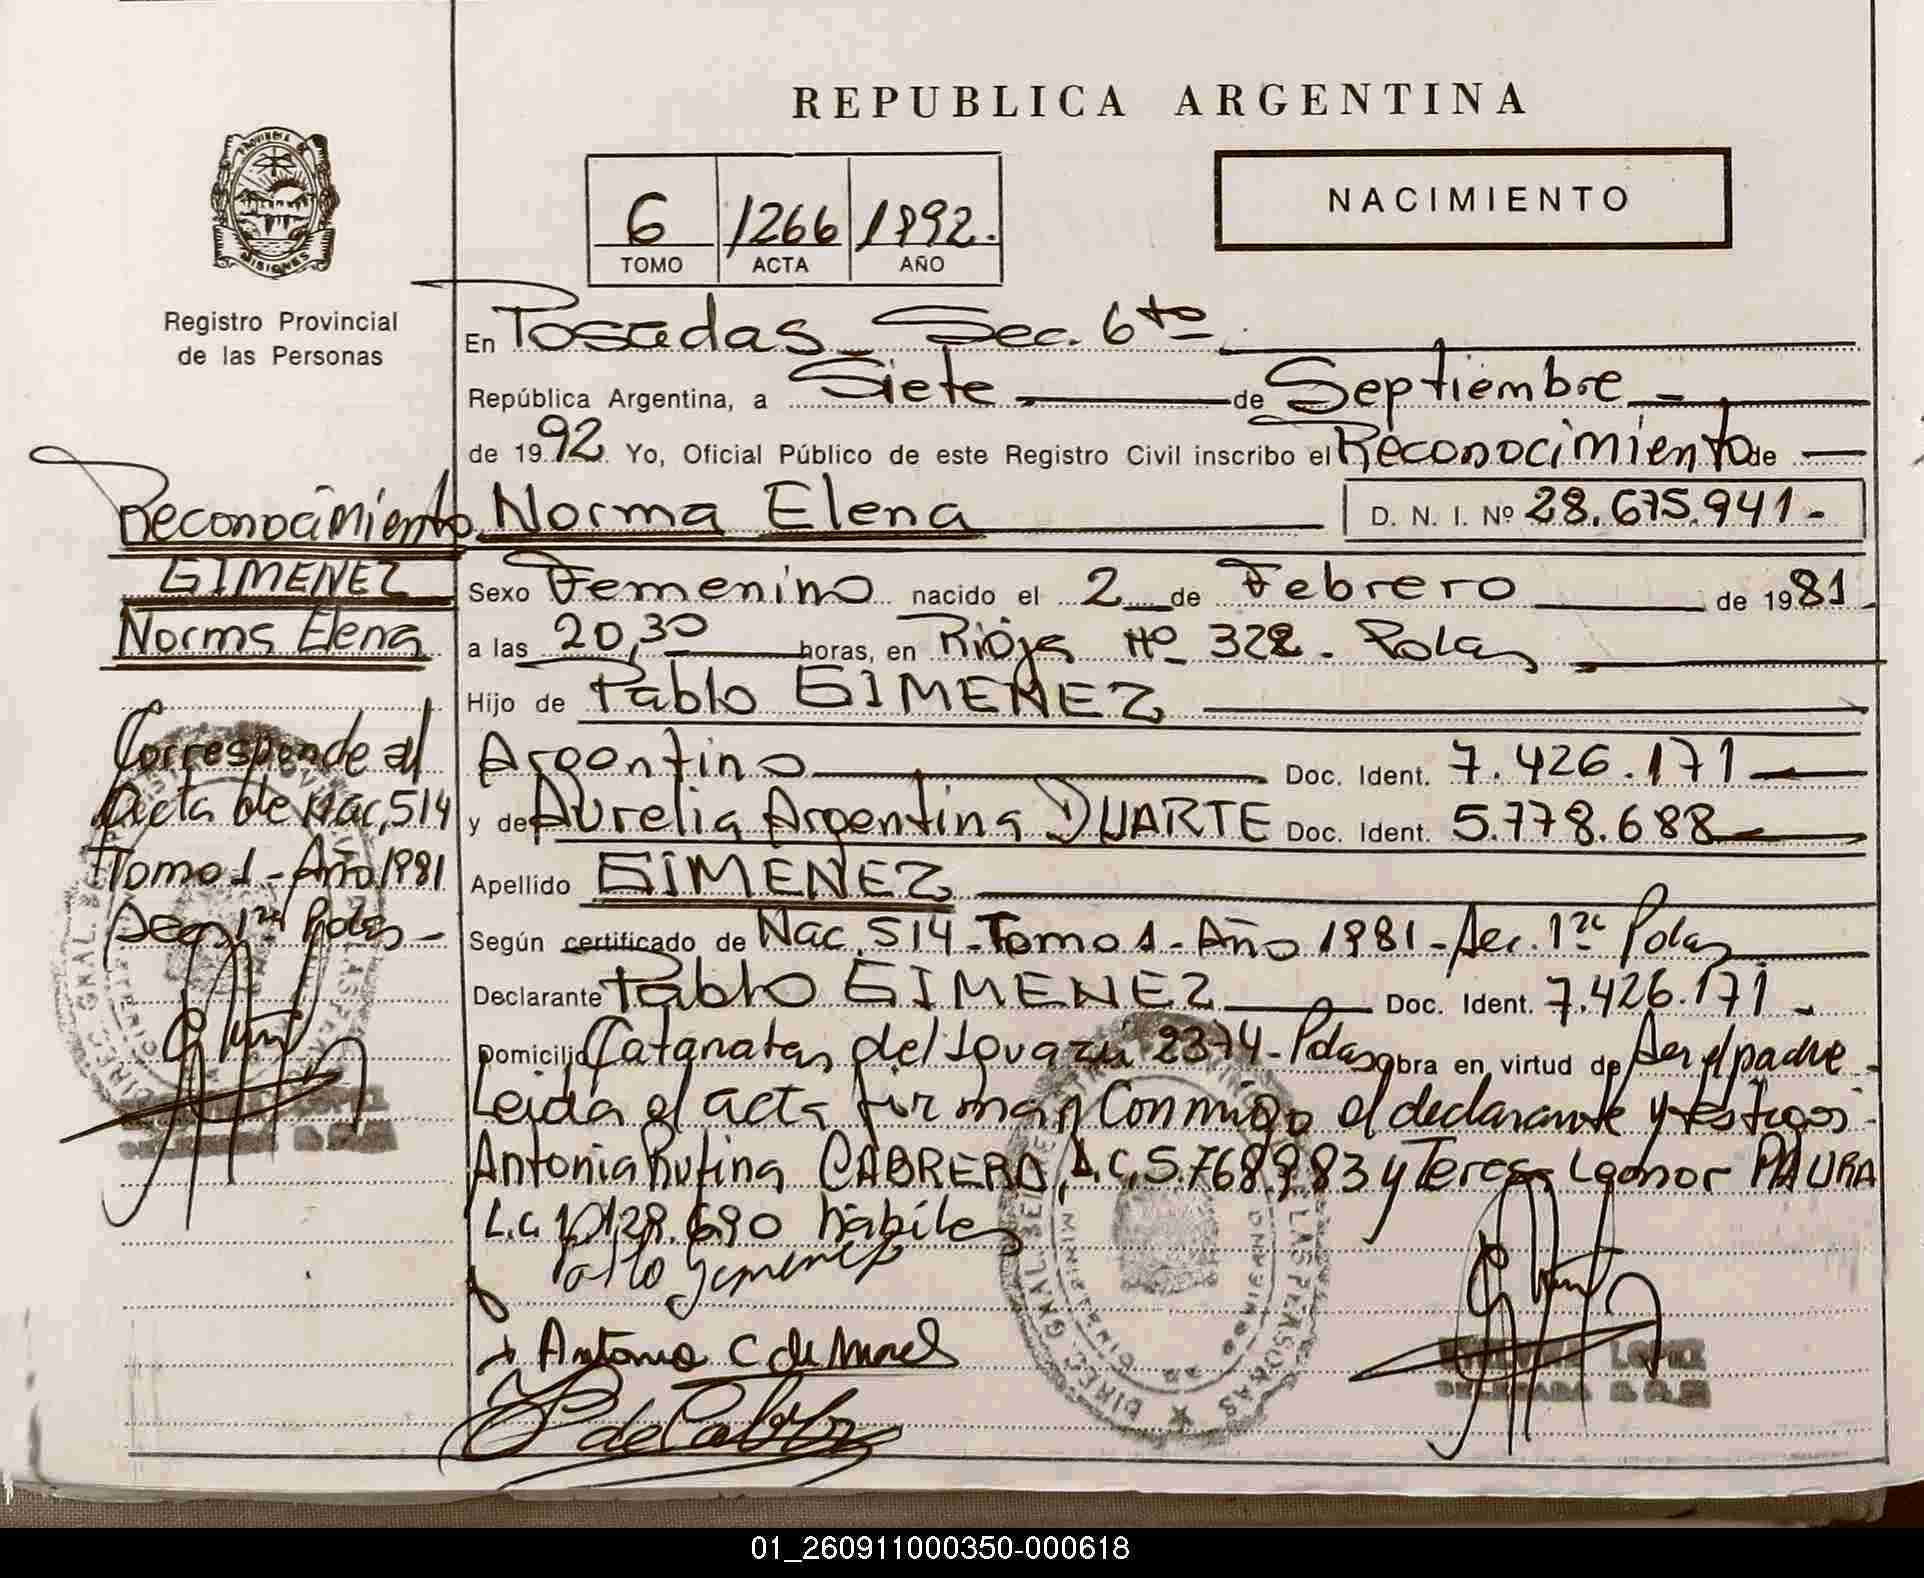 REPUBLICA ARGENTINA
PROVINCIA DE
MISIONES
Registro Provincial
de las Personas
NACIMIENTO
6 1266 1992.
TOMO ACTA AÑO
En Posadas Sec. 6ta
República Argentina, a Siete de Septiembre
de 1992 Yo, Oficial Público de este Registro Civil inscribo el Reconocimiento de
Norma Elena D. N. I. Nº 28.675.941-
Sexo Femenino nacido el 2 de Febrero de 1981
a las 20,30 horas, en Rioja Nº 328. Pdas
Hijo de Pablo GIMENEZ
Argentino Doc. Ident. 7.426.171
y de Aurelia Argentina DUARTE Doc. Ident. 5.778.688
Apellido GIMENEZ
Según certificado de Nac. 514-Tomo 1-Año 1981-Sec. 1ra Pdas
Declarante Pablo GIMENEZ Doc. Ident. 7.426.171
Domicilio Cataratas del Iguazú 2374-Pdas obra en virtud de Ser el padre
Leida el acta firman Conmigo el declarante y testigos
Antonia Rufina CABRERA, L.C. 5.768.983 y Teresa Leonor
L.C 10.128.690 hábiles
Pablo Gimenez
Antonia C de
Reconocimiento
GIMENEZ
Norma Elena
Corresponde al
Acta de Nac. 514
Tomo 1-Año 1981
Secc. 1ra Pdas-
LOPEZ
01_260911000350-000618